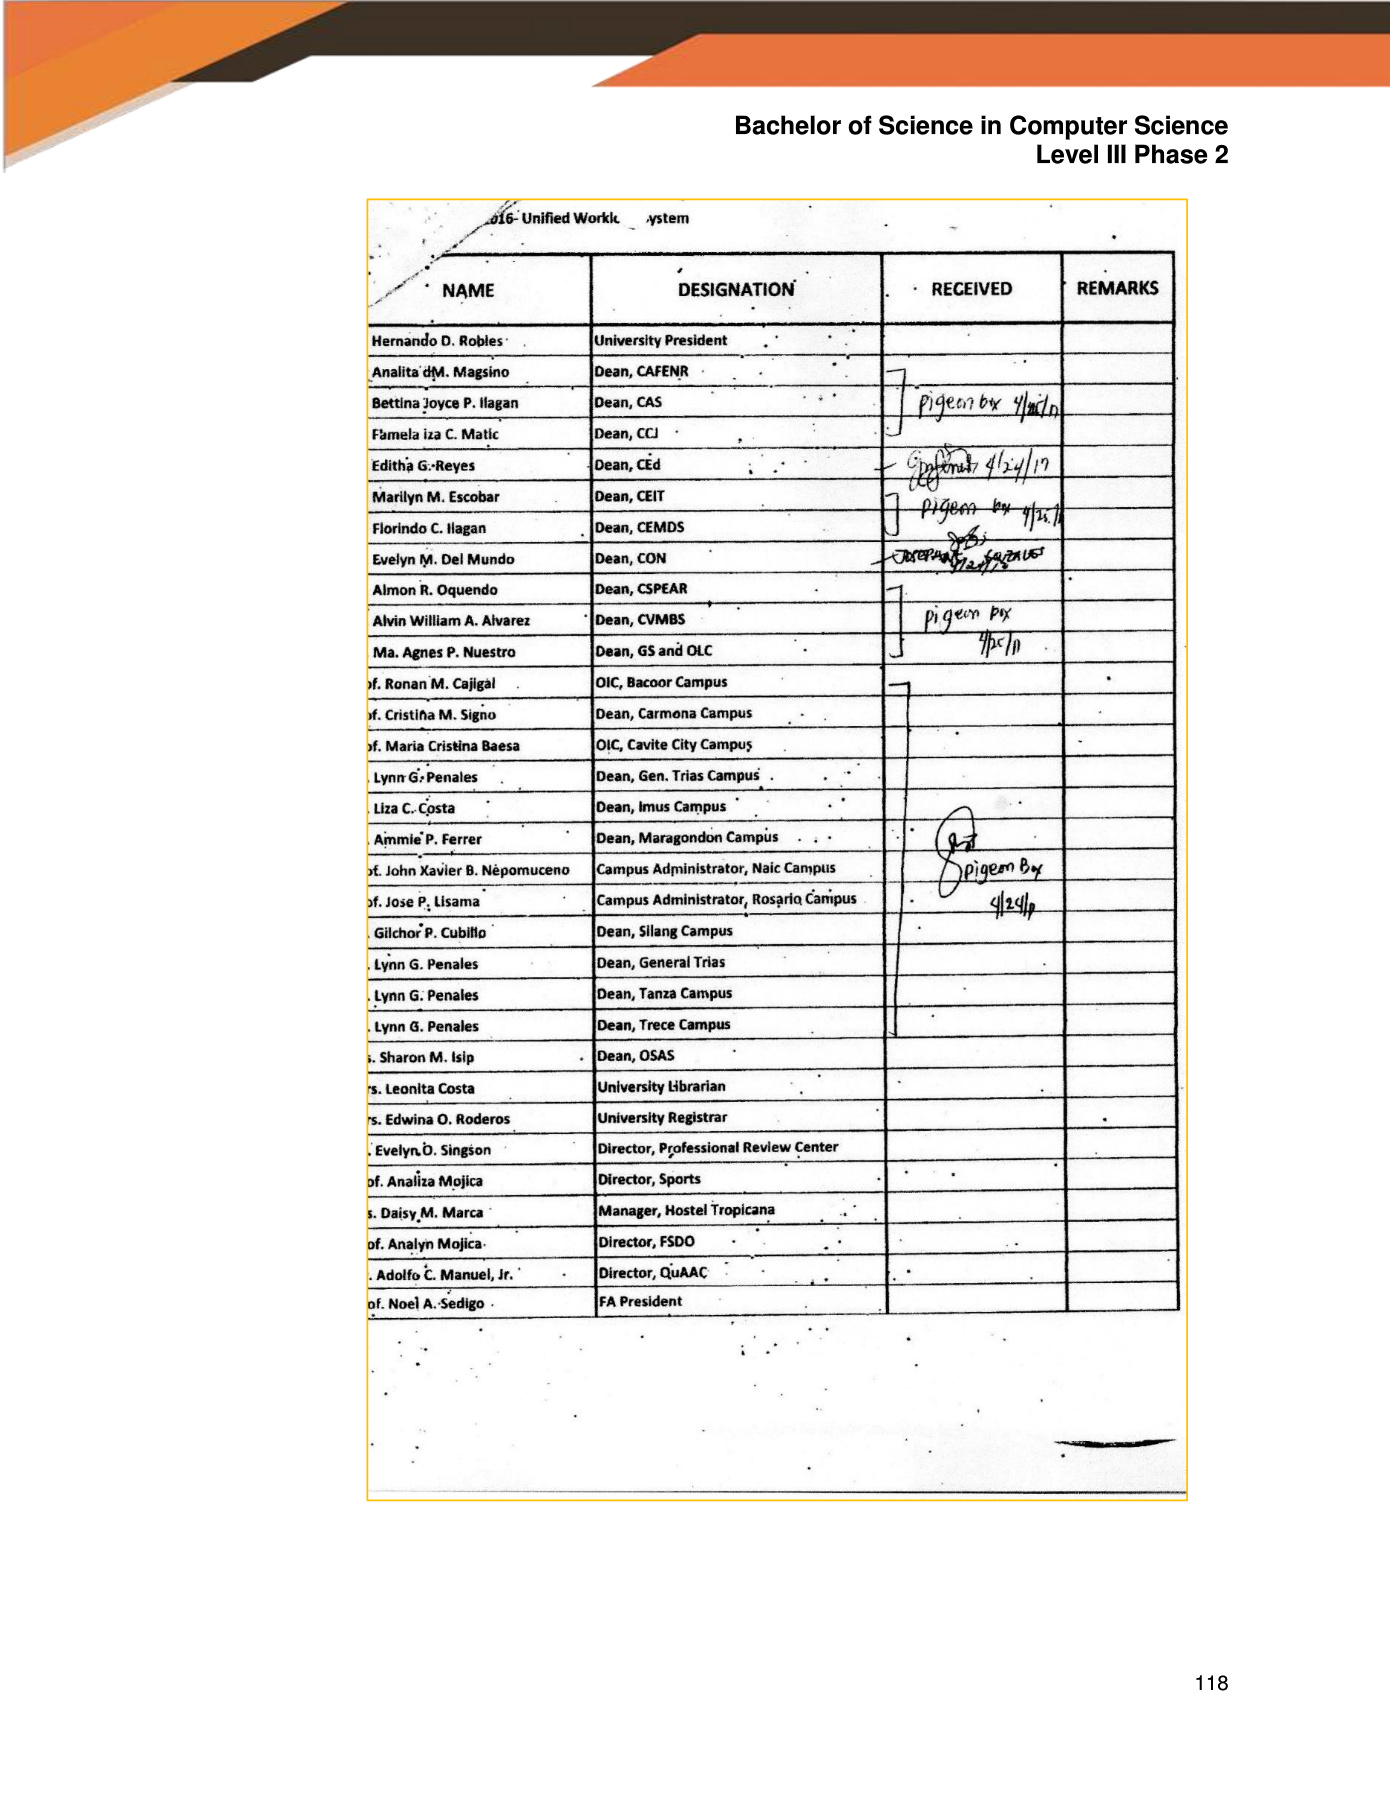 Bachelor of Science in Computer Science
Level III Phase 2
016- Unified Workl ystem
NAME DESIGNATION RECEIVED REMARKS
Hernando D. Robles University President
Analita dM. Magsino Dean, CAFENR
Bettina Joyce P. Ilagan Dean, CAS pigeon box 4/25/17
Famela iza C. Matic Dean, CCJ
Editha G. Reyes Dean, CEd 4/24/17
Marilyn M. Escobar Dean, CEIT pigeon box 4/25/
Florindo C. Ilagan Dean, CEMDS
Evelyn M. Del Mundo Dean, CON
Almon R. Oquendo Dean, CSPEAR
Alvin William A. Alvarez Dean, CVMBS pigeon box
Ma. Agnes P. Nuestro Dean, GS and OLC 4/25/17
of. Ronan M. Cajigal OIC, Bacoor Campus
of. Cristina M. Signo Dean, Carmona Campus
of. Maria Cristina Baesa OIC, Cavite City Campus
. Lynn G. Penales Dean, Gen. Trias Campus
. Liza C. Costa Dean, Imus Campus
. Ammie P. Ferrer Dean, Maragondon Campus
of. John Xavier B. Nepomuceno Campus Administrator, Naic Campus pigeon Box
of. Jose P. Lisama Campus Administrator, Rosario Campus 4/24/17
. Gilchor P. Cubillo Dean, Silang Campus
. Lynn G. Penales Dean, General Trias
. Lynn G. Penales Dean, Tanza Campus
. Lynn G. Penales Dean, Trece Campus
s. Sharon M. Isip Dean, OSAS
rs. Leonita Costa University Librarian
rs. Edwina O. Roderos University Registrar
. Evelyn O. Singson Director, Professional Review Center
of. Analiza Mojica Director, Sports
s. Daisy M. Marca Manager, Hostel Tropicana
of. Analyn Mojica Director, FSDO
. Adolfo C. Manuel, Jr. Director, QuAAC
of. Noel A. Sedigo FA President
118